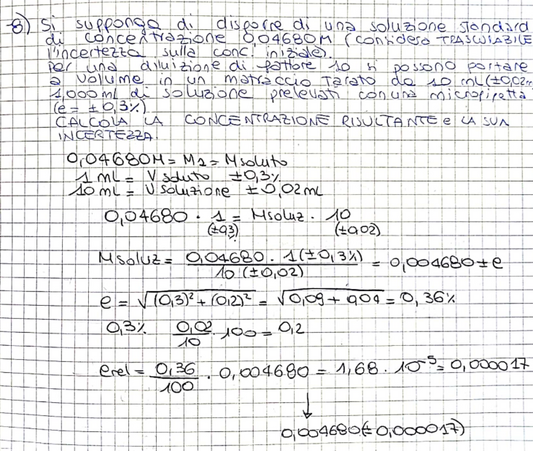 8) Si supponga di disporre di una soluzione standard
di concentrazione 0,04680M (considera TRASCURABILE
l'incertezza sulla conc. iniziale)
Per una diluizione di fattore 10 si possono portare
a volume in un matraccio tarato da 10 mL (±0,02m
1,000 ml di soluzione prelevati con una micropipetta
(e = ±0,3%)
CALCOLA LA CONCENTRAZIONE RISULTANTE e LA SUA
INCERTEZZA.
0,04680M = M1 = Msoluto
1 ml = V soluto ±0,3%
10 ml = V soluzione ±0,02 mL
0,04680 · 1 = Msoluz · 10
(±0,3) (±0,02)
Msoluz = 0,04680 · 1 (±0,3%) / 10 (±0,02) = 0,004680 ± e
e = √(0,3)² + (0,2)² = √0,09 + 0,04 = 0,36%
0,3% 0,02/10 · 100 = 0,2
erel = 0,36/100 · 0,004680 = 1,68 · 10⁻⁵ = 0,000017
↓
0,004680 (± 0,000017)